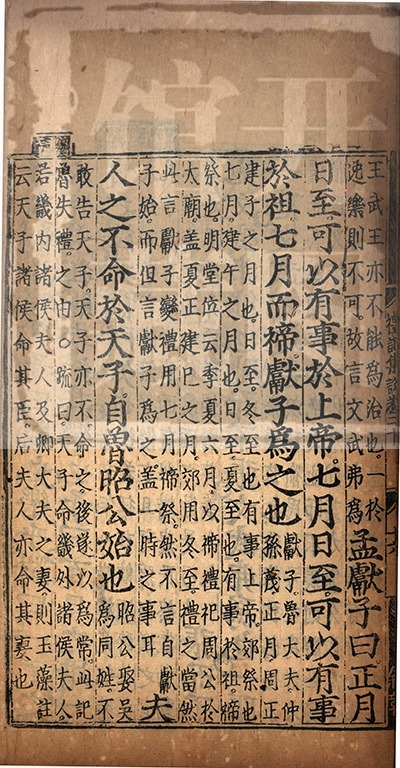 王武王亦不能為治也一於
逸樂則不可故言文武弗為
孟獻子曰正月
日至可以有事於上帝七月日至可以有事
於祖七月而禘獻子為之也
獻子魯大夫仲
孫蔑正月周正
建子之月也日至冬至也有事上帝郊祭也
七月建午之月也日至夏至也有事於祖禘
祭也明堂位云季夏六月以禘禮祀周公於
太廟蓋夏正建巳之月郊用冬至禮之當然
此言獻子變禮用七月禘祭然不言自獻
子始而但言獻子為之蓋一時之事耳
夫
人之不命於天子自魯昭公始也
昭公娶吳
為同姓不
敢告天子天子亦不命之後遂以為常此記
魯失禮之由○疏曰天子命畿外諸侯夫人
若畿內諸侯夫人及卿大夫之妻則玉藻註
云天子諸侯命其臣后夫人亦命其妻也